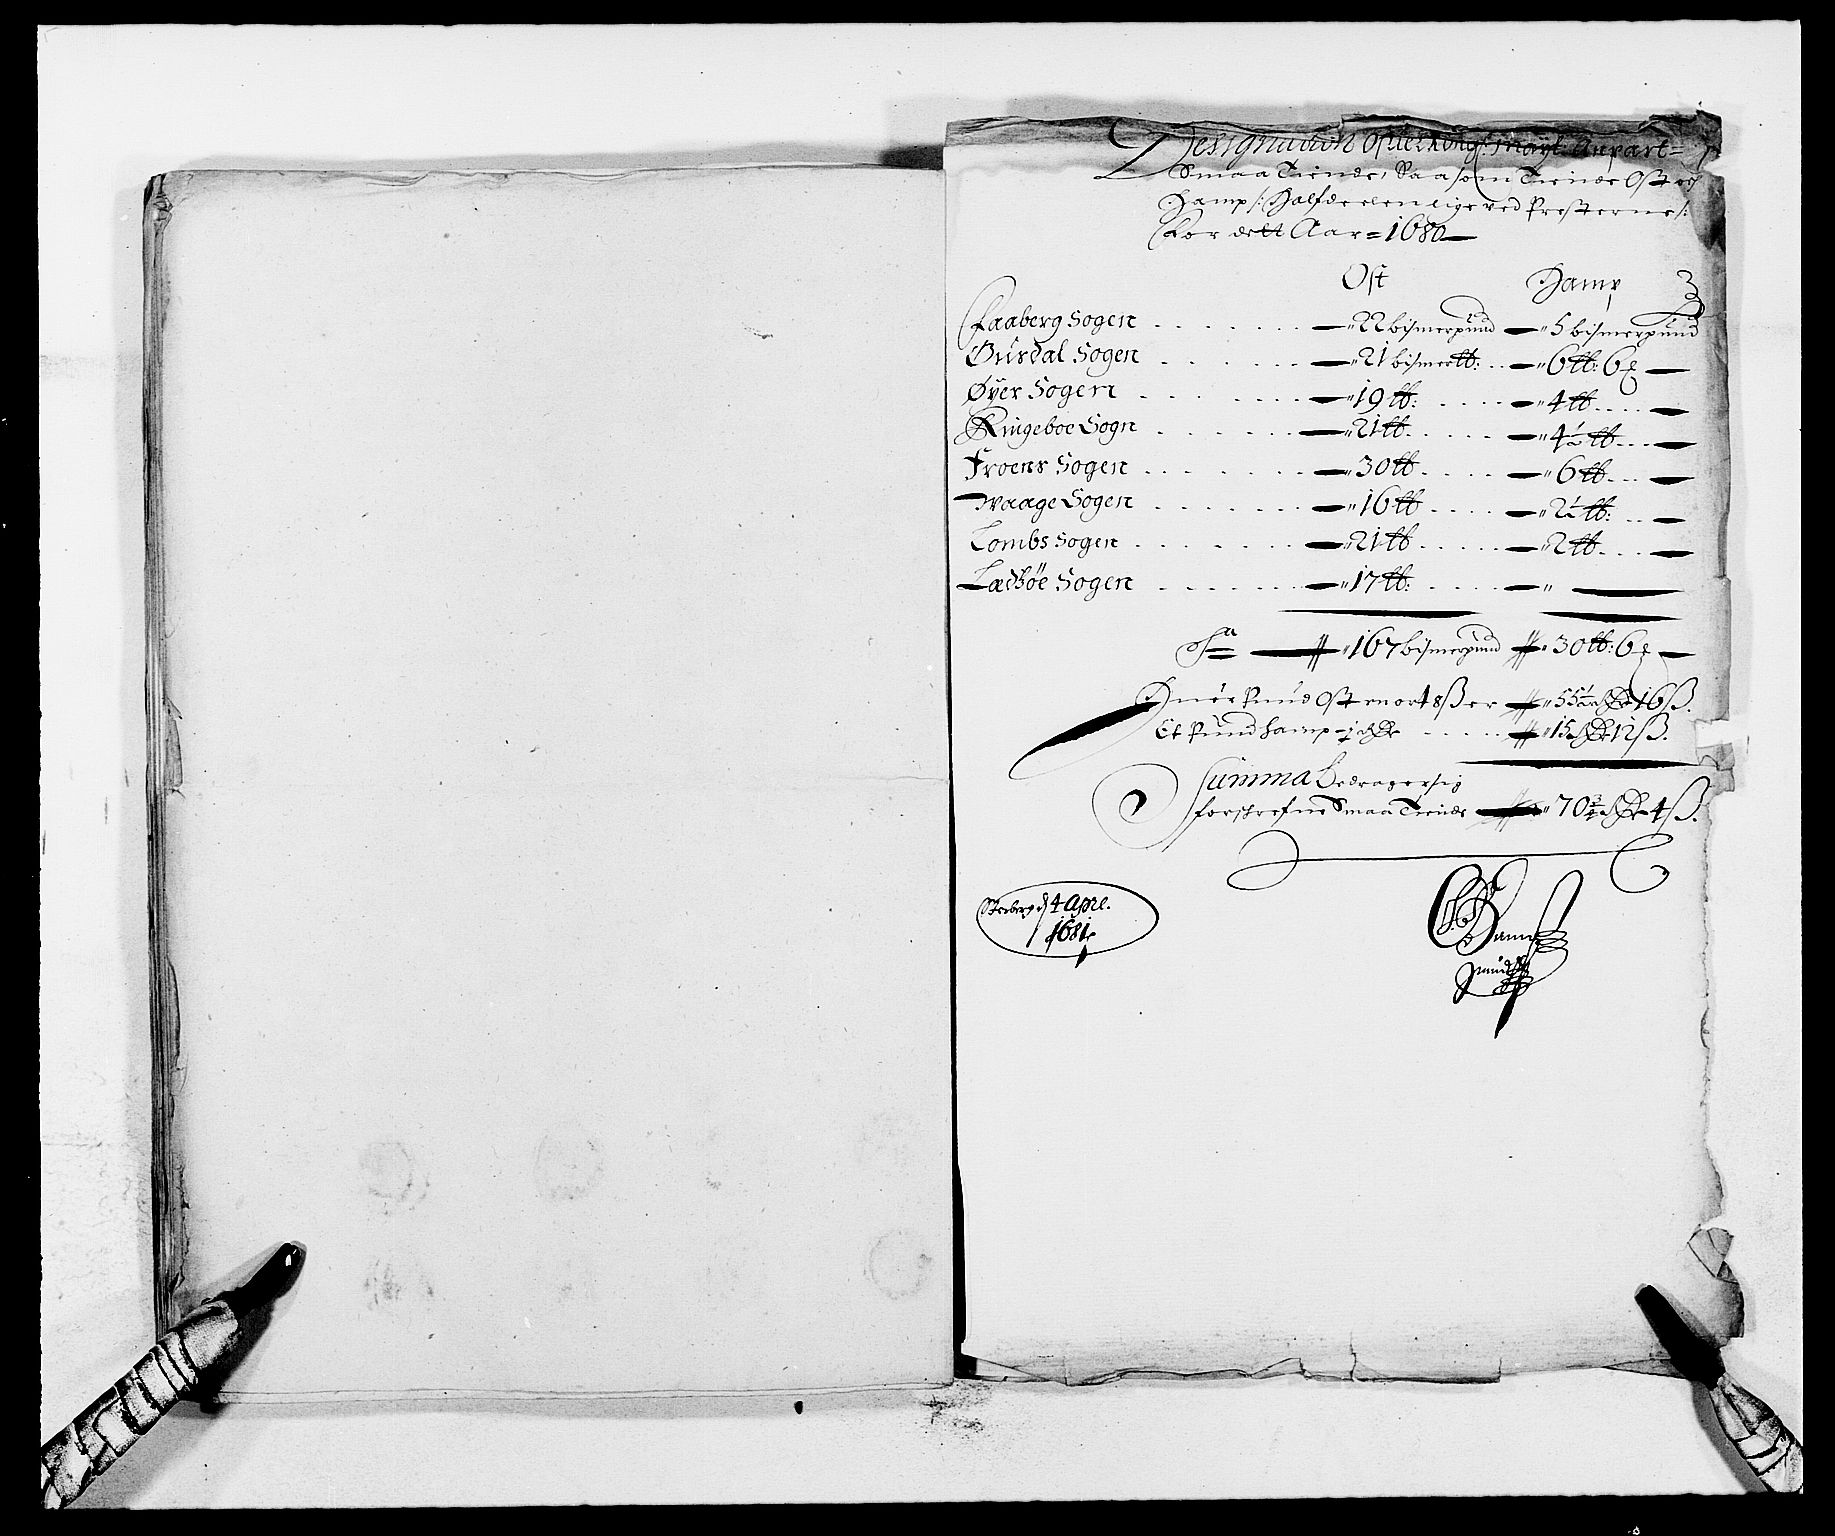 Designation Ofuer Kongl: Mayt: Anpart=
Smaa Tiende, Saasom Tiende Ost og
Hamp /: Halfdeelen lige ved Presterne /:
For dett Aar = 1680
Ost Hamp
Faaberg Sogen . . . . . . . — " 22 bismerpund — " 5 bismerpund
Gusdal Sogen . . . . . . — " 21 bismer ℔: . . — " 6 ℔: 6
Øyer Sogen . . . . . . . — " 19 ℔: . . . . — " 4 ℔ . . . . —
Ringeboe Sogn . . . . . . — " 21 ℔ . . . . . — " 4½ ℔ . . . —
Froens Sogen . . . . . . . — " 30 ℔ . . . . — " 6 ℔ . . . —
Waage Sogen . . . . . . . — " 16 ℔ . . . . — " 2½ ℔: . . —
Lombs Sogen . . . . . . . — " 21 ℔ . . . . . — " 2 ℔ . . . —
Lædsöe Sogen . . . . . . — " 17 ℔: . . . . — " —
Sa — " 167 bismerpund " 30 ℔: 6
Huer Pund Ost 8 ß er " 55½ Rdr 16 ß.
Et Pund hamp - j Rdr . . . . . " 15 Rdr 12 ß.
Summa Bedrager sig
forskrefne Smaa Tiende — " 70¾ Rdr 4 ß.
d 4 Apre.
1681